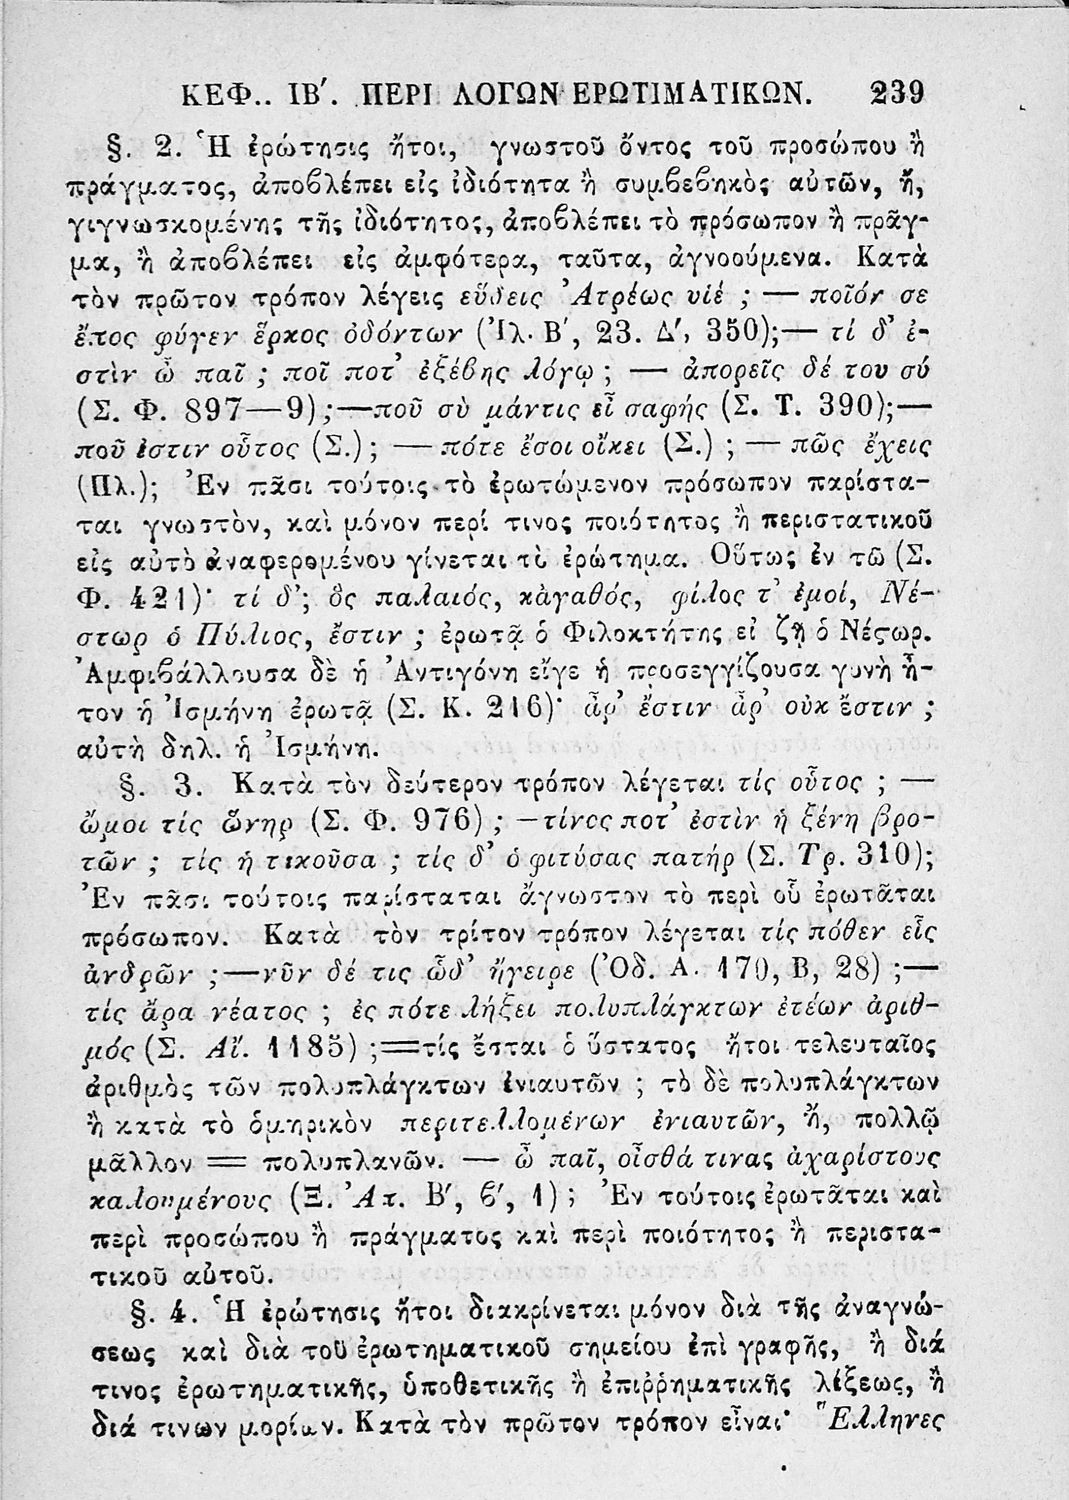 ΚΕΦ.. ΙΒ′. ΠΕΡΙ ΛΟΓΩΝ ΕΡΩΤΙΜΑΤΙΚΩΝ. 239
§. 2. Ἡ ἐρώτησις ἤτοι, γνωστοῦ ὄντος τοῦ προσώπου ἢ
πράγματος, ἀποβλέπει εἰς ἰδιότητα ἢ συμβεβηκὸς αὐτῶν, ἤ,
γιγνωσκομένης τῆς ἰδιότητος, ἀποβλέπει τὸ πρόσωπον ἢ πρᾶγ-
μα, ἢ ἀποβλέπει εἰς ἀμφότερα, ταῦτα, ἀγνοούμενα. Κατὰ
τὸν πρῶτον τρόπον λέγεις εὕδεις Ἀτρέως υἱέ ; — ποῖόν σε
ἔπος φύγεν ἕρκος ὀδόντων (Ἰλ. Β′, 23. Δ′, 350);— τί δ’ ἐ-
στὶν ὦ παῖ ; ποῖ ποτ’ ἐξέβης λόγῳ ; — ἀπορεῖς δέ του σύ
(Σ. Φ. 897—9);—ποῦ σὺ μάντις εἶ σαφής (Σ. Τ. 390);—
ποῦ ἐστιν οὗτος (Σ.); — πότε ἔσοι οἴκει (Σ.) ; — πῶς ἔχεις
(Πλ.); Ἐν πᾶσι τούτοις τὸ ἐρωτώμενον πρόσωπον παρίστα-
ται γνωστὸν, καὶ μόνον περί τινος ποιότητος ἢ περιστατικοῦ
εἰς αὐτὸ ἀναφερομένου γίνεται τὸ ἐρώτημα. Οὕτως ἐν τῶ (Σ.
Φ. 421)· τί δ’; ὃς παλαιός, κἀγαθός, φίλος τ’ ἐμοί, Νέ-
στωρ ὁ Πύλιος, ἔστιν ; ἐρωτᾷ ὁ Φιλοκτήτης εἰ ζῇ ὁ Νέστωρ.
Ἀμφιβάλλουσα δὲ ἡ Ἀντιγόνη εἴγε ἡ προσεγγίζουσα γυνὴ ἦ-
τον ἡ Ἰσμήνη ἐρωτᾷ (Σ. Κ. 216)· ἆρ’ ἔστιν ἆρ’ οὐκ ἔστιν ;
αὐτὴ δηλ. ἡ Ἰσμήνη.
§. 3. Κατὰ τὸν δεύτερον τρόπον λέγεται τίς οὗτος ; —
ὤμοι τίς ὦνηρ (Σ. Φ. 976) ; —τίνος ποτ’ ἐστὶν ἡ ξένη βρο-
τῶν ; τίς ἡ τεκοῦσα ; τίς δ’ ὁ φιτύσας πατήρ (Σ. Τρ. 310);
Ἐν πᾶσι τούτοις παρίσταται ἄγνωστον τὸ περὶ οὗ ἐρωτᾶται
πρόσωπον. Κατὰ τὸν τρίτον τρόπον λέγεται τίς πόθεν εἶς
ἀνδρῶν ;—νῦν δέ τις ὧδ’ ἤγειρε (Ὀδ. Α. 170, Β, 28) ;—
τίς ἄρα νέατος ; ἐς πότε λήξει πολυπλάγκτων ἐτέων ἀριθ-
μός (Σ. Αἴ. 1185) ;=τίς ἔσται ὁ ὕστατος ἤτοι τελευταῖος
ἀριθμὸς τῶν πολυπλάγκτων ἐνιαυτῶν ; τὸ δὲ πολυπλάγκτων
ἢ κατὰ τὸ ὁμηρικὸν περιτελλομένων ἐνιαυτῶν, ἤ, πολλῷ
μᾶλλον = πολυπλανῶν. — ὦ παῖ, οἶσθά τινας ἀχαρίστους
καλουμένους (Ξ. Ἀπ. Β′, β′, 1) ; Ἐν τούτοις ἐρωτᾶται καὶ
περὶ προσώπου ἢ πράγματος καὶ περὶ ποιότητος ἢ περιστα-
τικοῦ αὐτοῦ.
§. 4. Ἡ ἐρώτησις ἤτοι διακρίνεται μόνον διὰ τῆς ἀναγνώ-
σεως καὶ διὰ τοῦ ἐρωτηματικοῦ σημείου ἐπὶ γραφῆς, ἢ διά
τινος ἐρωτηματικῆς, ὑποθετικῆς ἢ ἐπιῤῥηματικῆς λέξεως, ἢ
διά τινων μορίων. Κατὰ τὸν πρῶτον τρόπον εἶναι· Ἕλληνες